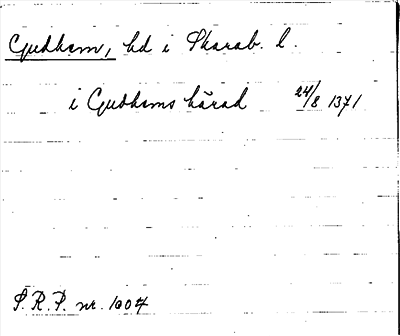 Gudhem, hd i Skarab. l.
i Gudhems härad 24/8 1371
S.R.P. nr. 1004